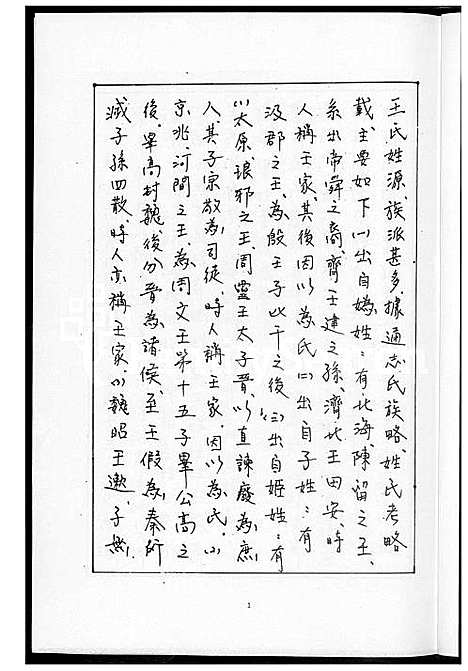 王氏姓源、族派甚多、據通志氏族略、姓氏考略
載、主要如下(一)出自媯姓：有北海、陳留之王、
系出帝舜之裔、齊王建之孫、濟北王田安、時
人稱王家、其後因以為氏(二)出自子姓：有
汲郡之王、為殷王子比干之後(三)出自姬姓：有
(1)太原、琅邪之王、周靈王太子晉、以直諫廢為庶
人、其子宗敬為司徒、時人稱王家、因以為氏、(2)
京兆、河間之王、為周文王第十五子畢公高之
後、畢高封魏、後分晉為諸侯、至王假為秦所
滅子孫四散、時人亦稱王家(3)魏昭王遫、子無
1